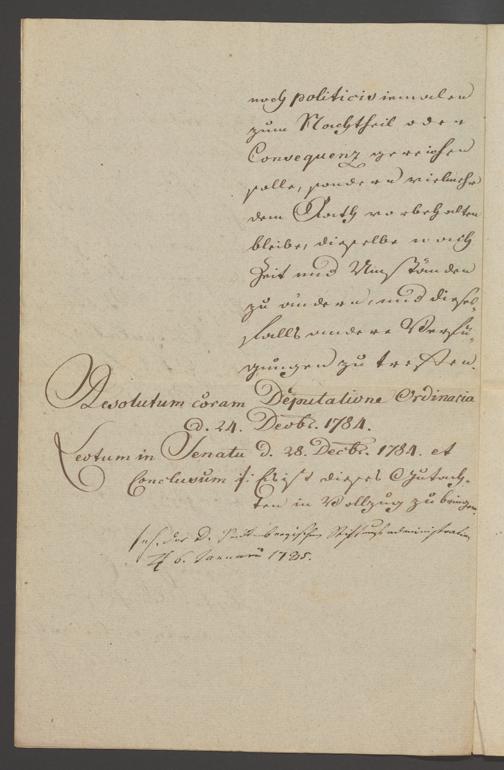 noch politicis iemalen
zum Nachtheil oder
Consequenz gereichen
solle, sondern vielmehr
dem Rath vorbehalten
bleibe, dieselbe nach
Zeit und Umständen
zu ändern, und diesel-
falls andere Verfü-
gungen zu treffen.
Resolutum coram Deputatione Ordinaria
d. 24. Decbr. 1784.
Lectum in Senatu d. 28. Decbr. 1784. et
Conclusum : Es ist dieses Gutach-
ten in Vollzug zu bringen.
der D. Stiftungsadministration
6. Januarii 1785.